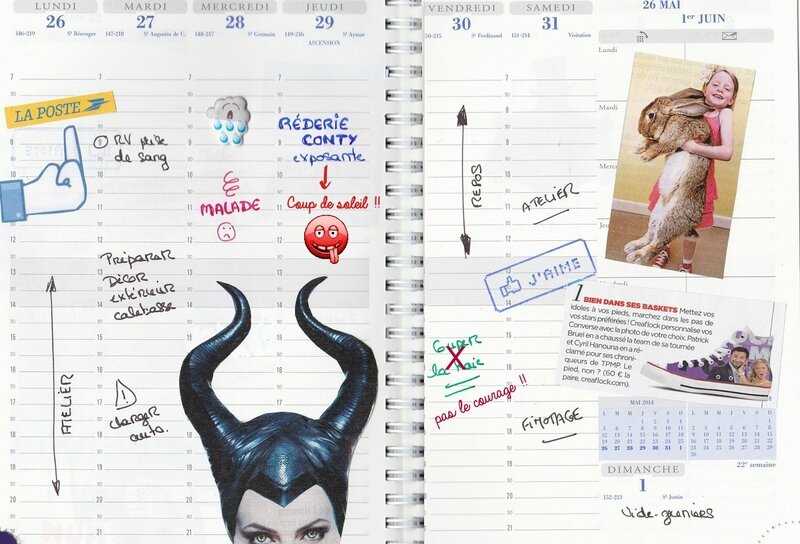 LUNDI
26
146-219 St Bérenger
MARDI
27
147-218 St Augustin de C.
MERCREDI
28
148-217 St Germain
JEUDI
29
149-216 St Aymar
ASCENSION
LA POSTE
RV prise
de sang
Préparer
Décor
extérieur
calebasse
ATELIER
!
charger
auto.
MALADE
RÉDERIE
CONTY
exposante
Coup de soleil !!
VENDREDI
30
150-215 St Ferdinand
SAMEDI
31
151-214 Visitation
26 MAI
1er JUIN
Lundi
Mardi
Jeudi
REPOS
ATELIER
J'AIME
Couper
la haie
pas le courage !!
FIMOTAGE
1 BIEN DANS SES BASKETS Mettez vos
idoles à vos pieds, marchez dans les pas de
vos stars préférées ! Creaflock personnalise vos
Converse avec la photo de votre choix. Patrick
Bruel en a chaussé la team de sa tournée
et Cyril Hanouna en a ré-
clamé pour ses chroni-
queurs de TPMP. Le
pied, non ? (60 € la
paire, creaflock.com).
MAI 2014
L M M J V S D
22e semaine
DIMANCHE
1
152-213 St Justin
Vide-greniers